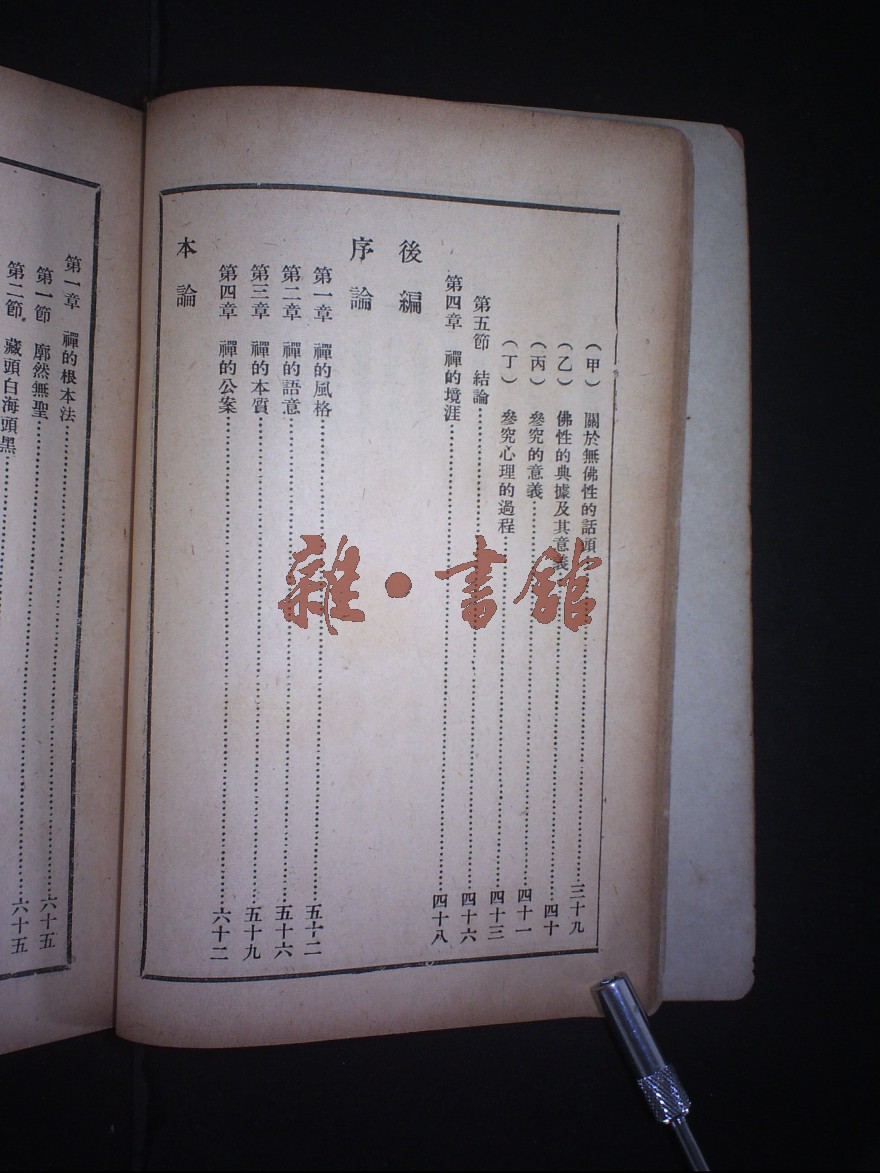 （甲） 關於無佛性的話頭……三十九
（乙） 佛性的典據及其意義……四十
（丙） 參究的意義……四十一
（丁） 參究心理的過程……四十三
第五節 結論……四十六
第四章 禪的境涯……四十八
後編
序論
第一章 禪的風格……五十二
第二章 禪的語意……五十六
第三章 禪的本質……五十九
第四章 禪的公案……六十二
本論
第一章 禪的根本法……六十五
第一節 廓然無聖……六十五
第二節 藏頭白海頭黑……六十五
雜·書館